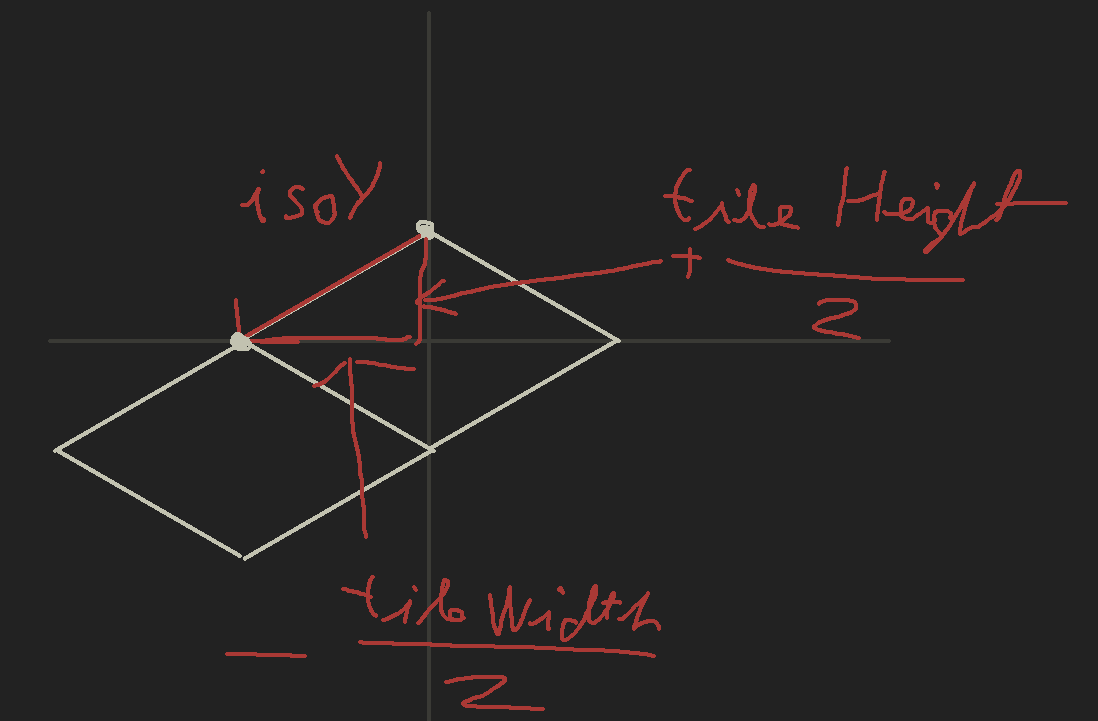 isoY
tile Height
+
2
- tile Width
2